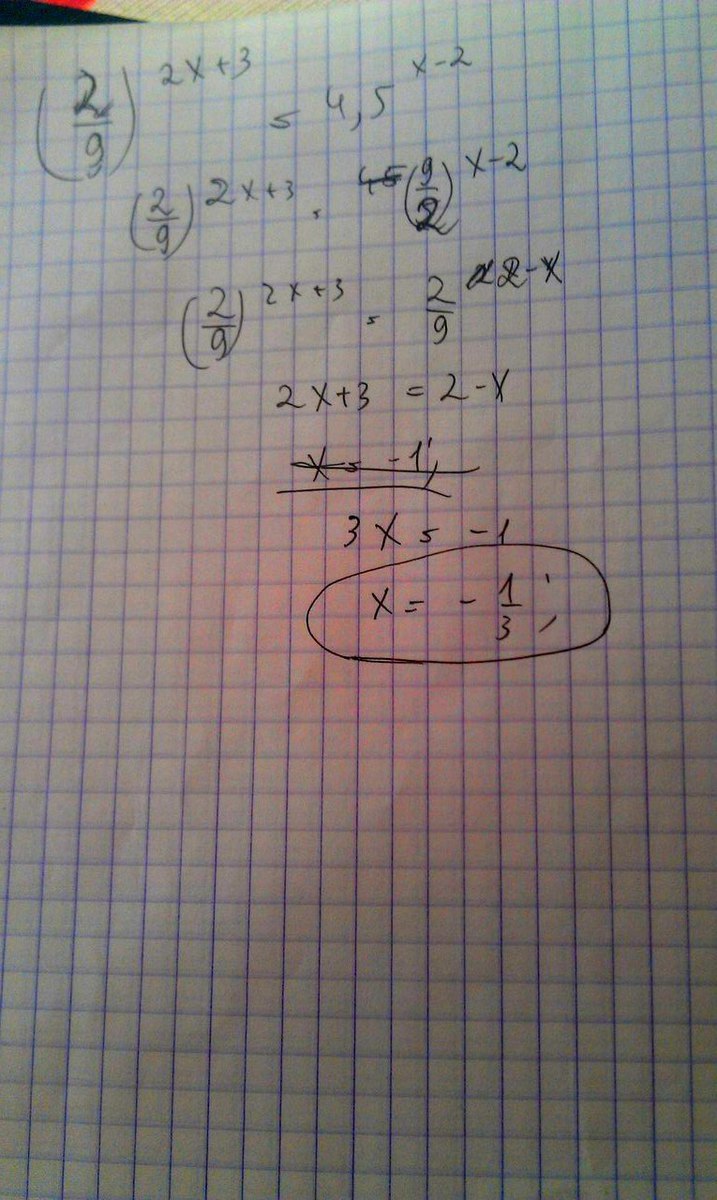 (2/9)^(2x+3) = 4,5^(x-2)
(2/9)^(2x+3) = (9/2)^(x-2)
(2/9)^(2x+3) = 2/9^(2-x)
2x+3 = 2-x
x = -1;
3x = -1
x = -1/3;